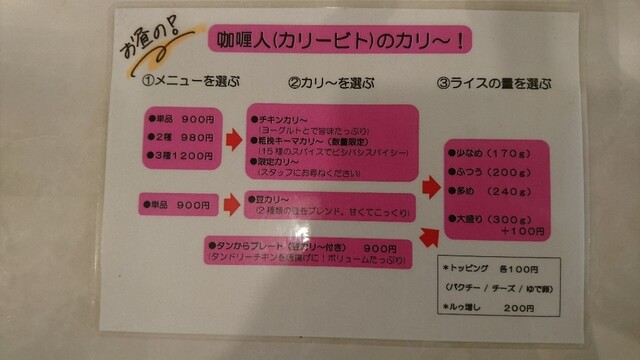 お昼の!
咖喱人(カリービト)のカリ〜!
①メニューを選ぶ
②カリ〜を選ぶ
③ライスの量を選ぶ
●単品 900円
●2種 980円
●3種1200円
●チキンカリ〜
(ヨーグルトとで旨味たっぷり)
●粗挽キーマカリ〜(数量限定)
(15種のスパイスでビシバシスパイシー)
●限定カリ〜
(スタッフにお尋ねください)
●単品 900円
●豆カリ〜
(2種類の豆をブレンド、甘くてこっくり)
●タンからプレート(豆カリ〜付き) 900円
(タンドリーチキンを唐揚げに!ボリュームたっぷり)
●少なめ(170g)
●ふつう(200g)
●多め (240g)
●大盛り(300g)
+100円
*トッピング 各100円
(パクチー / チーズ / ゆで卵)
*ルゥ増し 200円